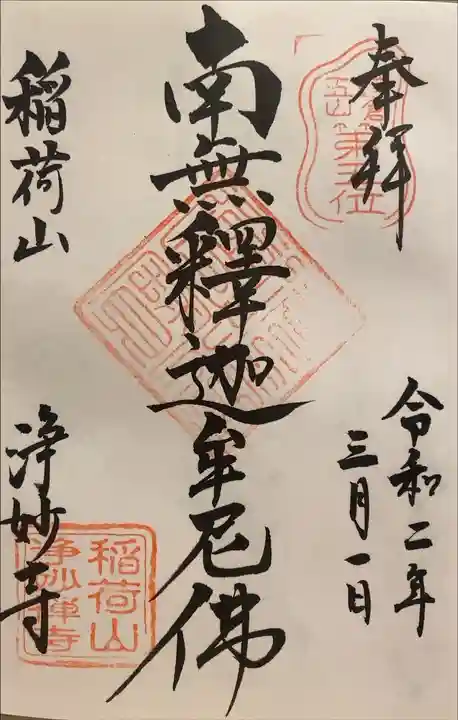 奉拝
五山
第五位
令和二年
三月一日
南無釋迦牟尼佛
稲荷山
浄妙寺
稲荷山
浄妙禅寺